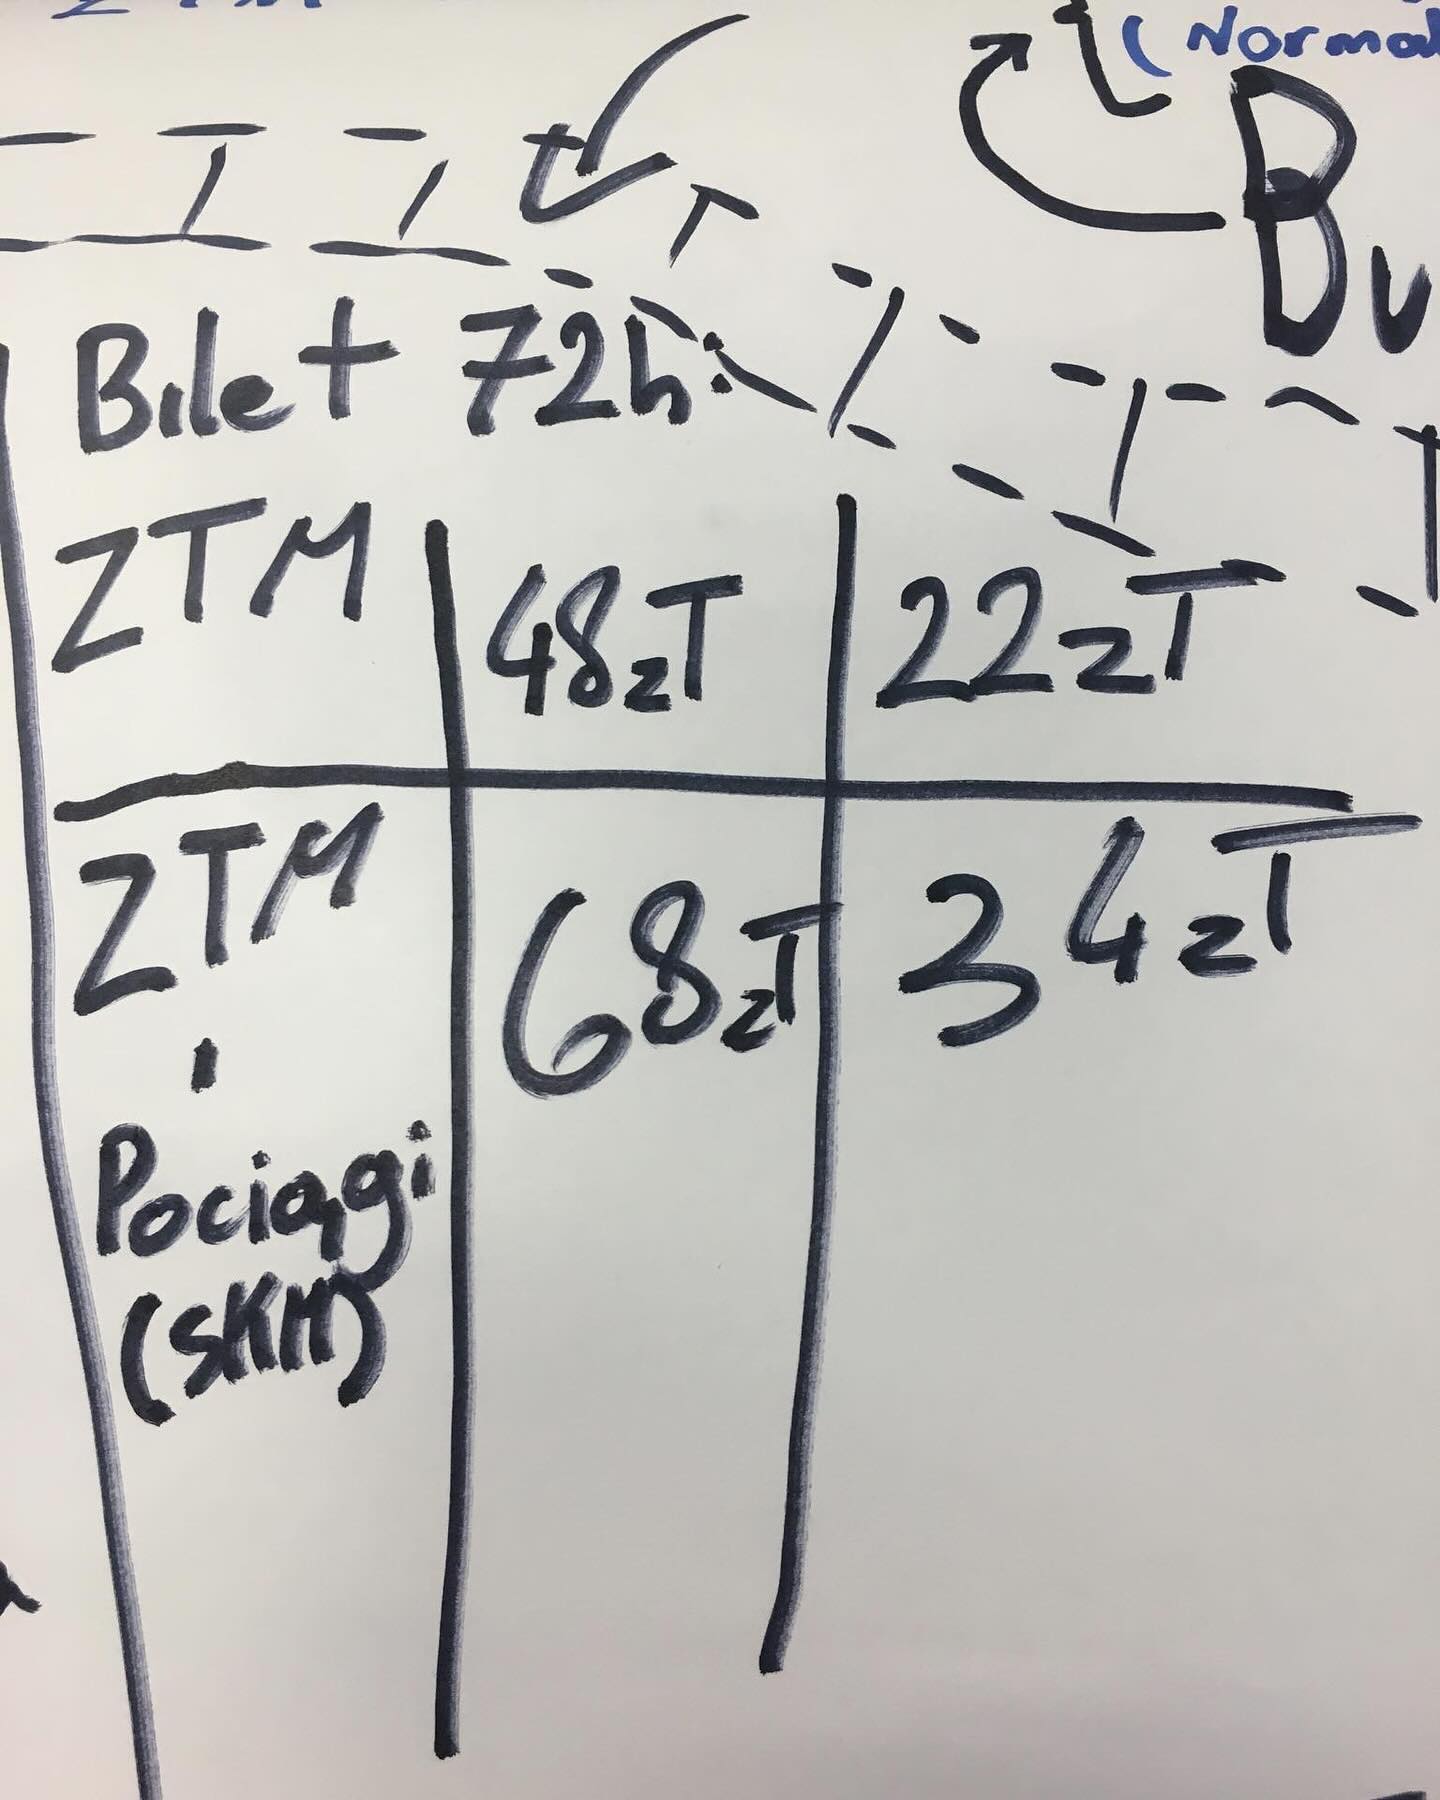 (Normal
Bu
Bilet 72h:
ZTM 48zł 22zł
ZTM 68zł 34zł
i
Pociągi
(SKM)